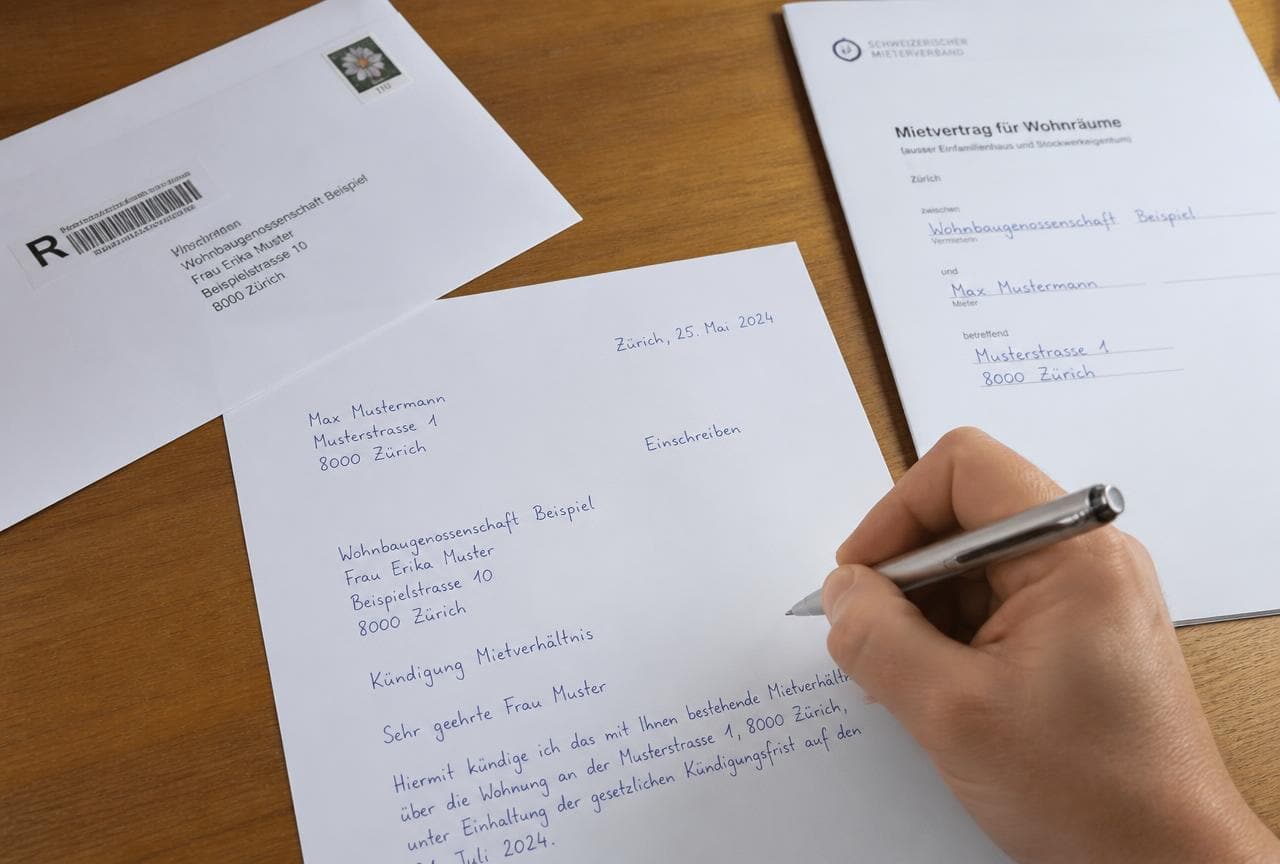 R
Wohnbaugenossenschaft Beispiel
Frau Erika Muster
Beispielstrasse 10
8000 Zürich
SCHWEIZERISCHER
MIETERVERBAND
Mietvertrag für Wohnräume
(ausser Einfamilienhaus und Stockwerkeigentum)
Zürich
zwischen
Wohnbaugenossenschaft Beispiel
Vermieterin
und
Max Mustermann
Mieter
betreffend
Musterstrasse 1
8000 Zürich
Zürich, 25. Mai 2024
Max Mustermann
Musterstrasse 1
8000 Zürich
Einschreiben
Wohnbaugenossenschaft Beispiel
Frau Erika Muster
Beispielstrasse 10
8000 Zürich
Kündigung Mietverhältnis
Sehr geehrte Frau Muster
Hiermit kündige ich das mit Ihnen bestehende
über die Wohnung an der Musterstrasse 1, 8000 Zürich,
unter Einhaltung der gesetzlichen Kündigungsfrist auf den
Juli 2024.